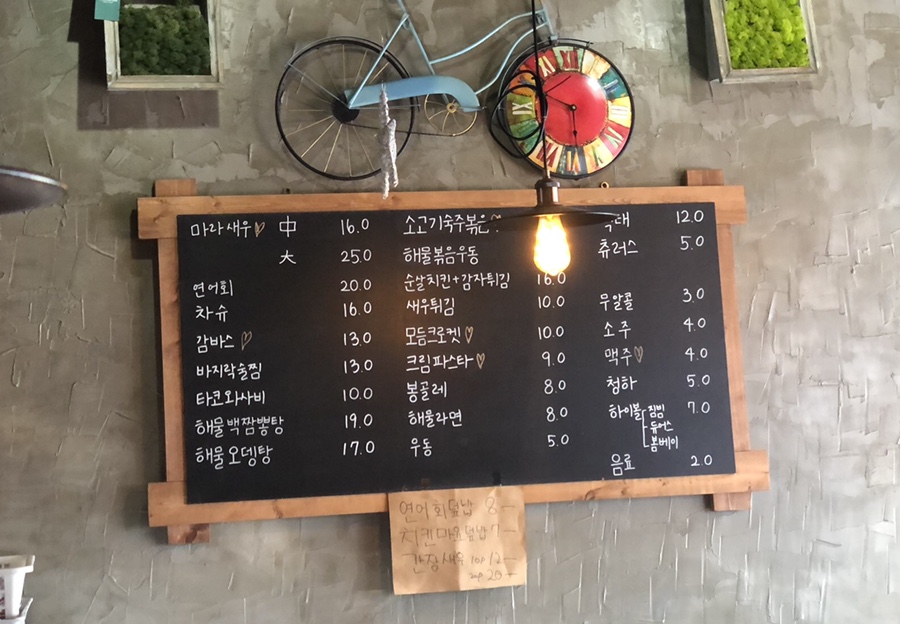 마라새우♡ 中 16.0
大 25.0
연어회 20.0
차슈 16.0
감바스♡ 13.0
바지락술찜 13.0
타코와사비 10.0
해물백짬뽕탕 19.0
해물오뎅탕 17.0
소고기숙주볶음♡
해물볶음우동
순살치킨+감자튀김 16.0
새우튀김 10.0
모듬크로켓♡ 10.0
크림파스타♡ 9.0
봉골레 8.0
해물라면 8.0
우동 5.0
12.0
츄러스 5.0
무알콜 3.0
소주 4.0
맥주♡ 4.0
청하 5.0
하이볼 짐빔 7.0
듀어스
봄베이
음료 2.0
연어회덮밥 8-
치킨마요덮밥 7-
간장새우 10p 12-
20p 20-